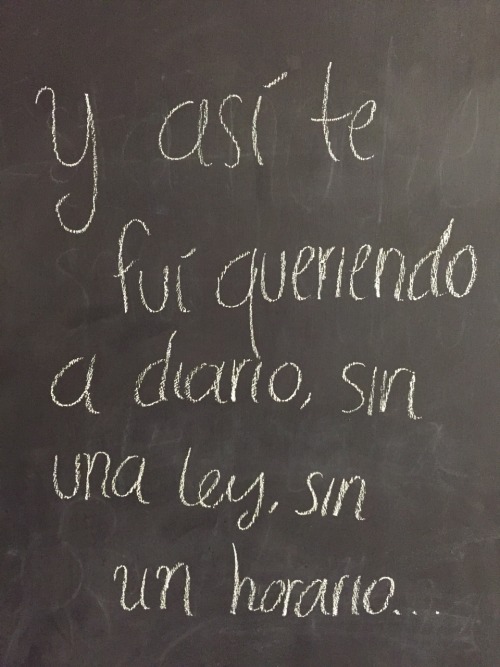 Y así te
fuí queriendo
a diario, sin
una ley, sin
un horario...